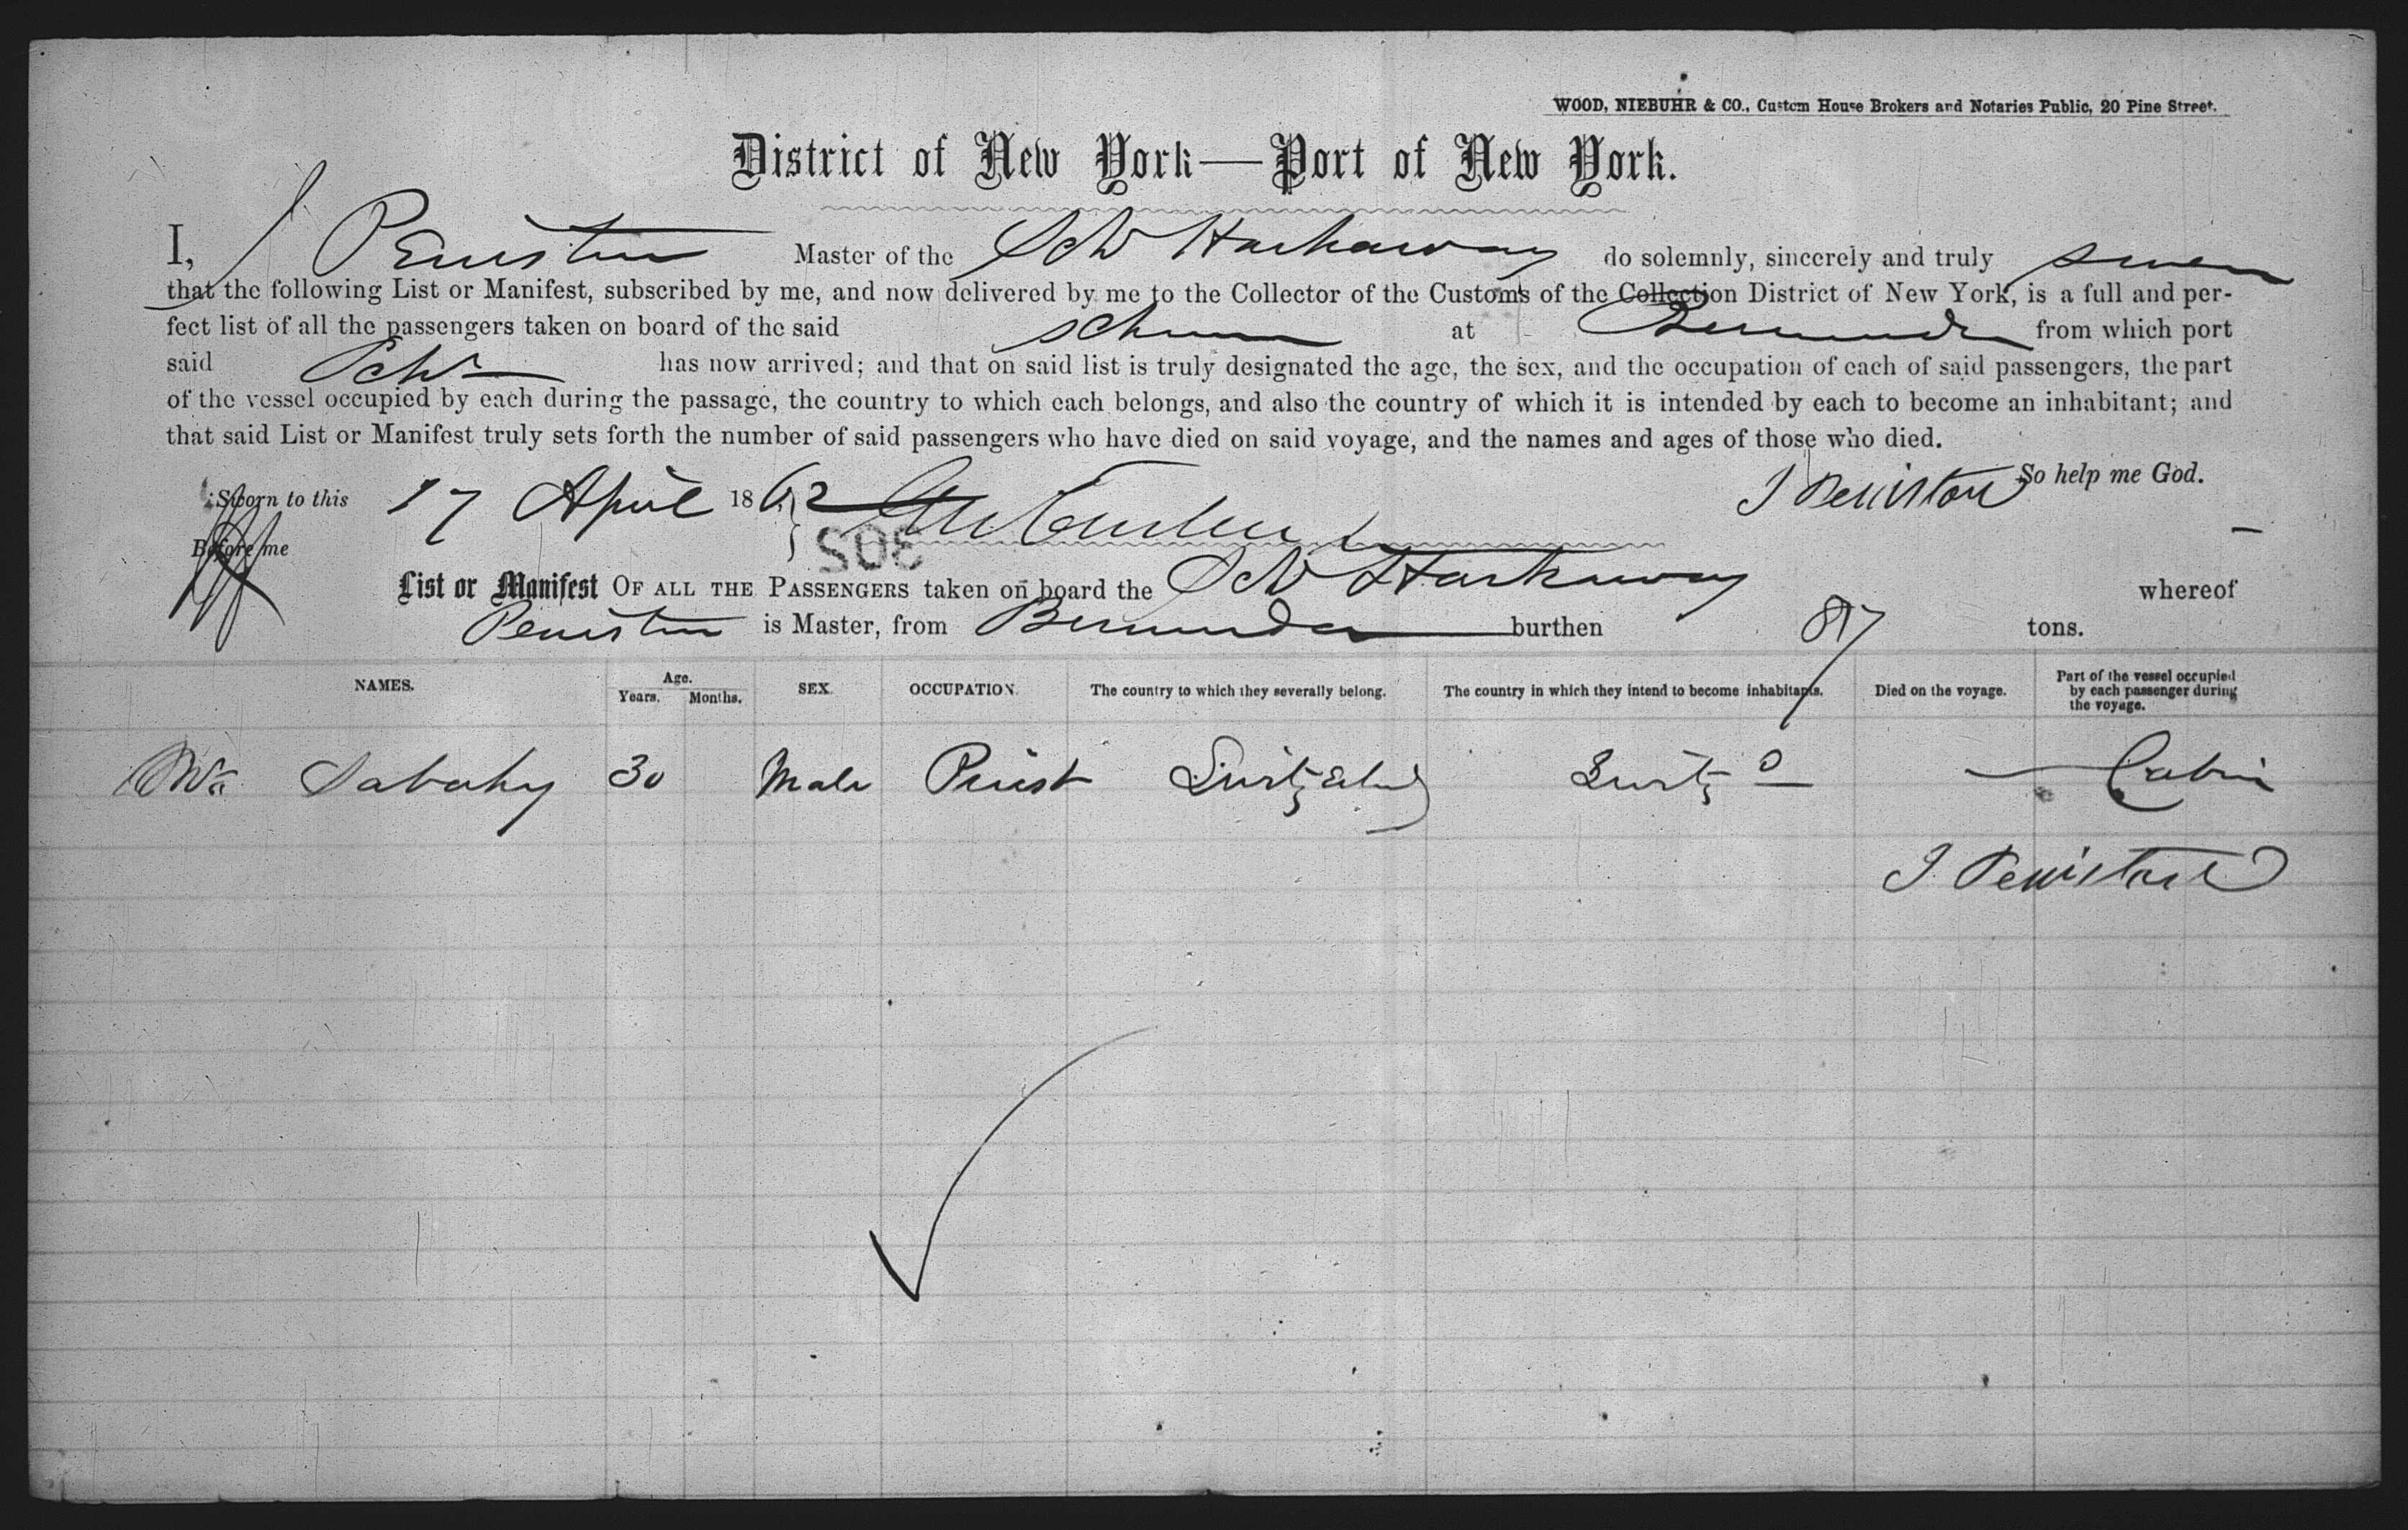 WOOD, NIEBUHR & CO., Custom House Brokers and Notaries Public, 20 Pine Street.
District of New York—Port of New York.
I, J Peniston Master of the Schr Harkaway do solemnly, sincerely and truly swear
that the following List or Manifest, subscribed by me, and now delivered by me to the Collector of the Customs of the Collection District of New York, is a full and per-
fect list of all the passengers taken on board of the said schr at Bermuda from which port
said Schr has now arrived; and that on said list is truly designated the age, the sex, and the occupation of each of said passengers, the part
of the vessel occupied by each during the passage, the country to which each belongs, and also the country of which it is intended by each to become an inhabitant; and
that said List or Manifest truly sets forth the number of said passengers who have died on said voyage, and the names and ages of those who died.
So help me God.
Sworn to this 17 April 1862 J Peniston
Before me
302
List or Manifest OF ALL THE PASSENGERS taken on board the Schr Harkaway whereof
Peniston is Master, from Bermuda burthen 87 tons.
NAMES. Age. Years. Months. SEX. OCCUPATION. The country to which they severally belong. The country in which they intend to become inhabitants. Died on the voyage. Part of the vessel occupied by each passenger during the voyage.
Mr Sabahy 30 Male Priest Switzerland Switzd — Cabin
J. Peniston